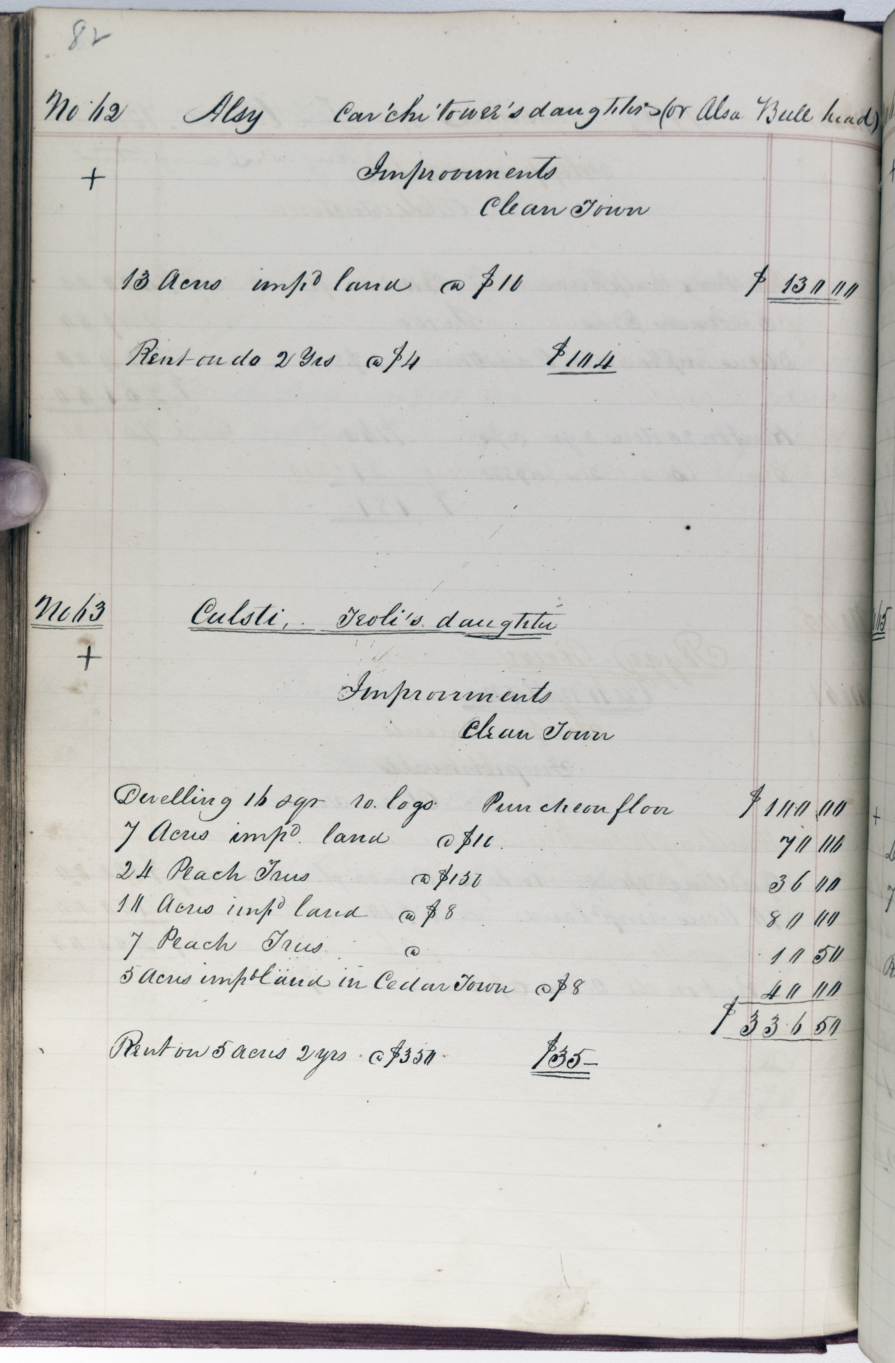 82
No 62 Alsy Car'chi'tower's daughter (or Alsa Bull head)
+ Improvements
Clean Town
13 Acres imp'd land @ $10 $ 130 00
Rent on do 2 Yrs @ $4 $104
No 63 Culsti, Tsoli's daughter
+
Improvements
Clean Town
Dwelling 16 sqr ro. logs Puncheon floor $ 100 00
7 Acres imp'd. land @ $10. 70 00
24 Peach Trees @ $150 36 00
10 Acres imp'd land @ $8 80 00
7 Peach Trees @ 10 50
5 Acres imp'd land in Cedar Town @ $8 40 00
$ 336 50
Rent on 5 acres 2 yrs @ $350 $35-
65